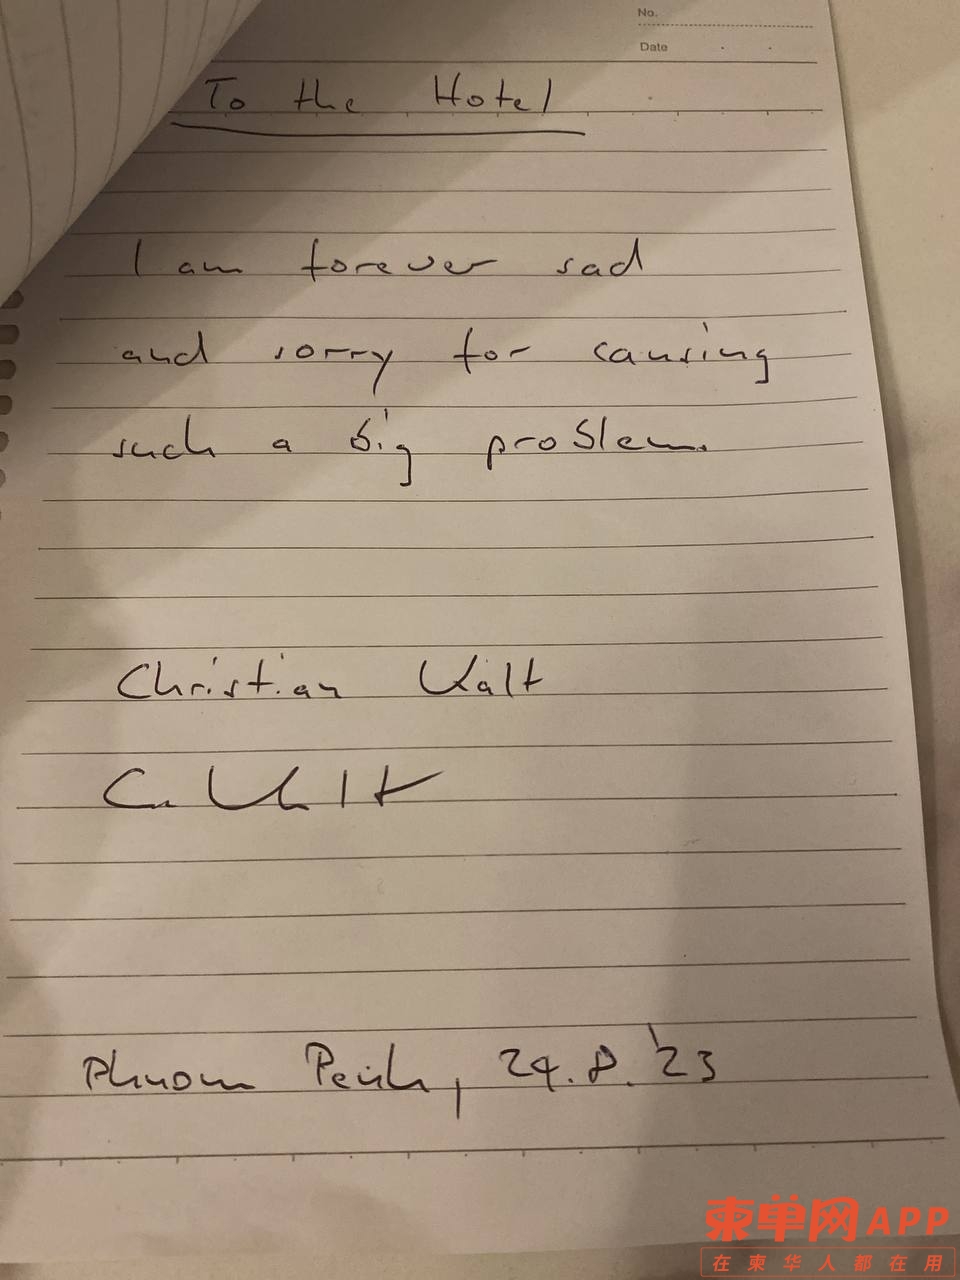 No.
Date
To the Hotel
I am forever sad
and sorry for causing
such a big problem.
Christian Kalt
C. Kalt
Phnom Penh, 24.8.'23
柬单网APP
在柬华人都在用